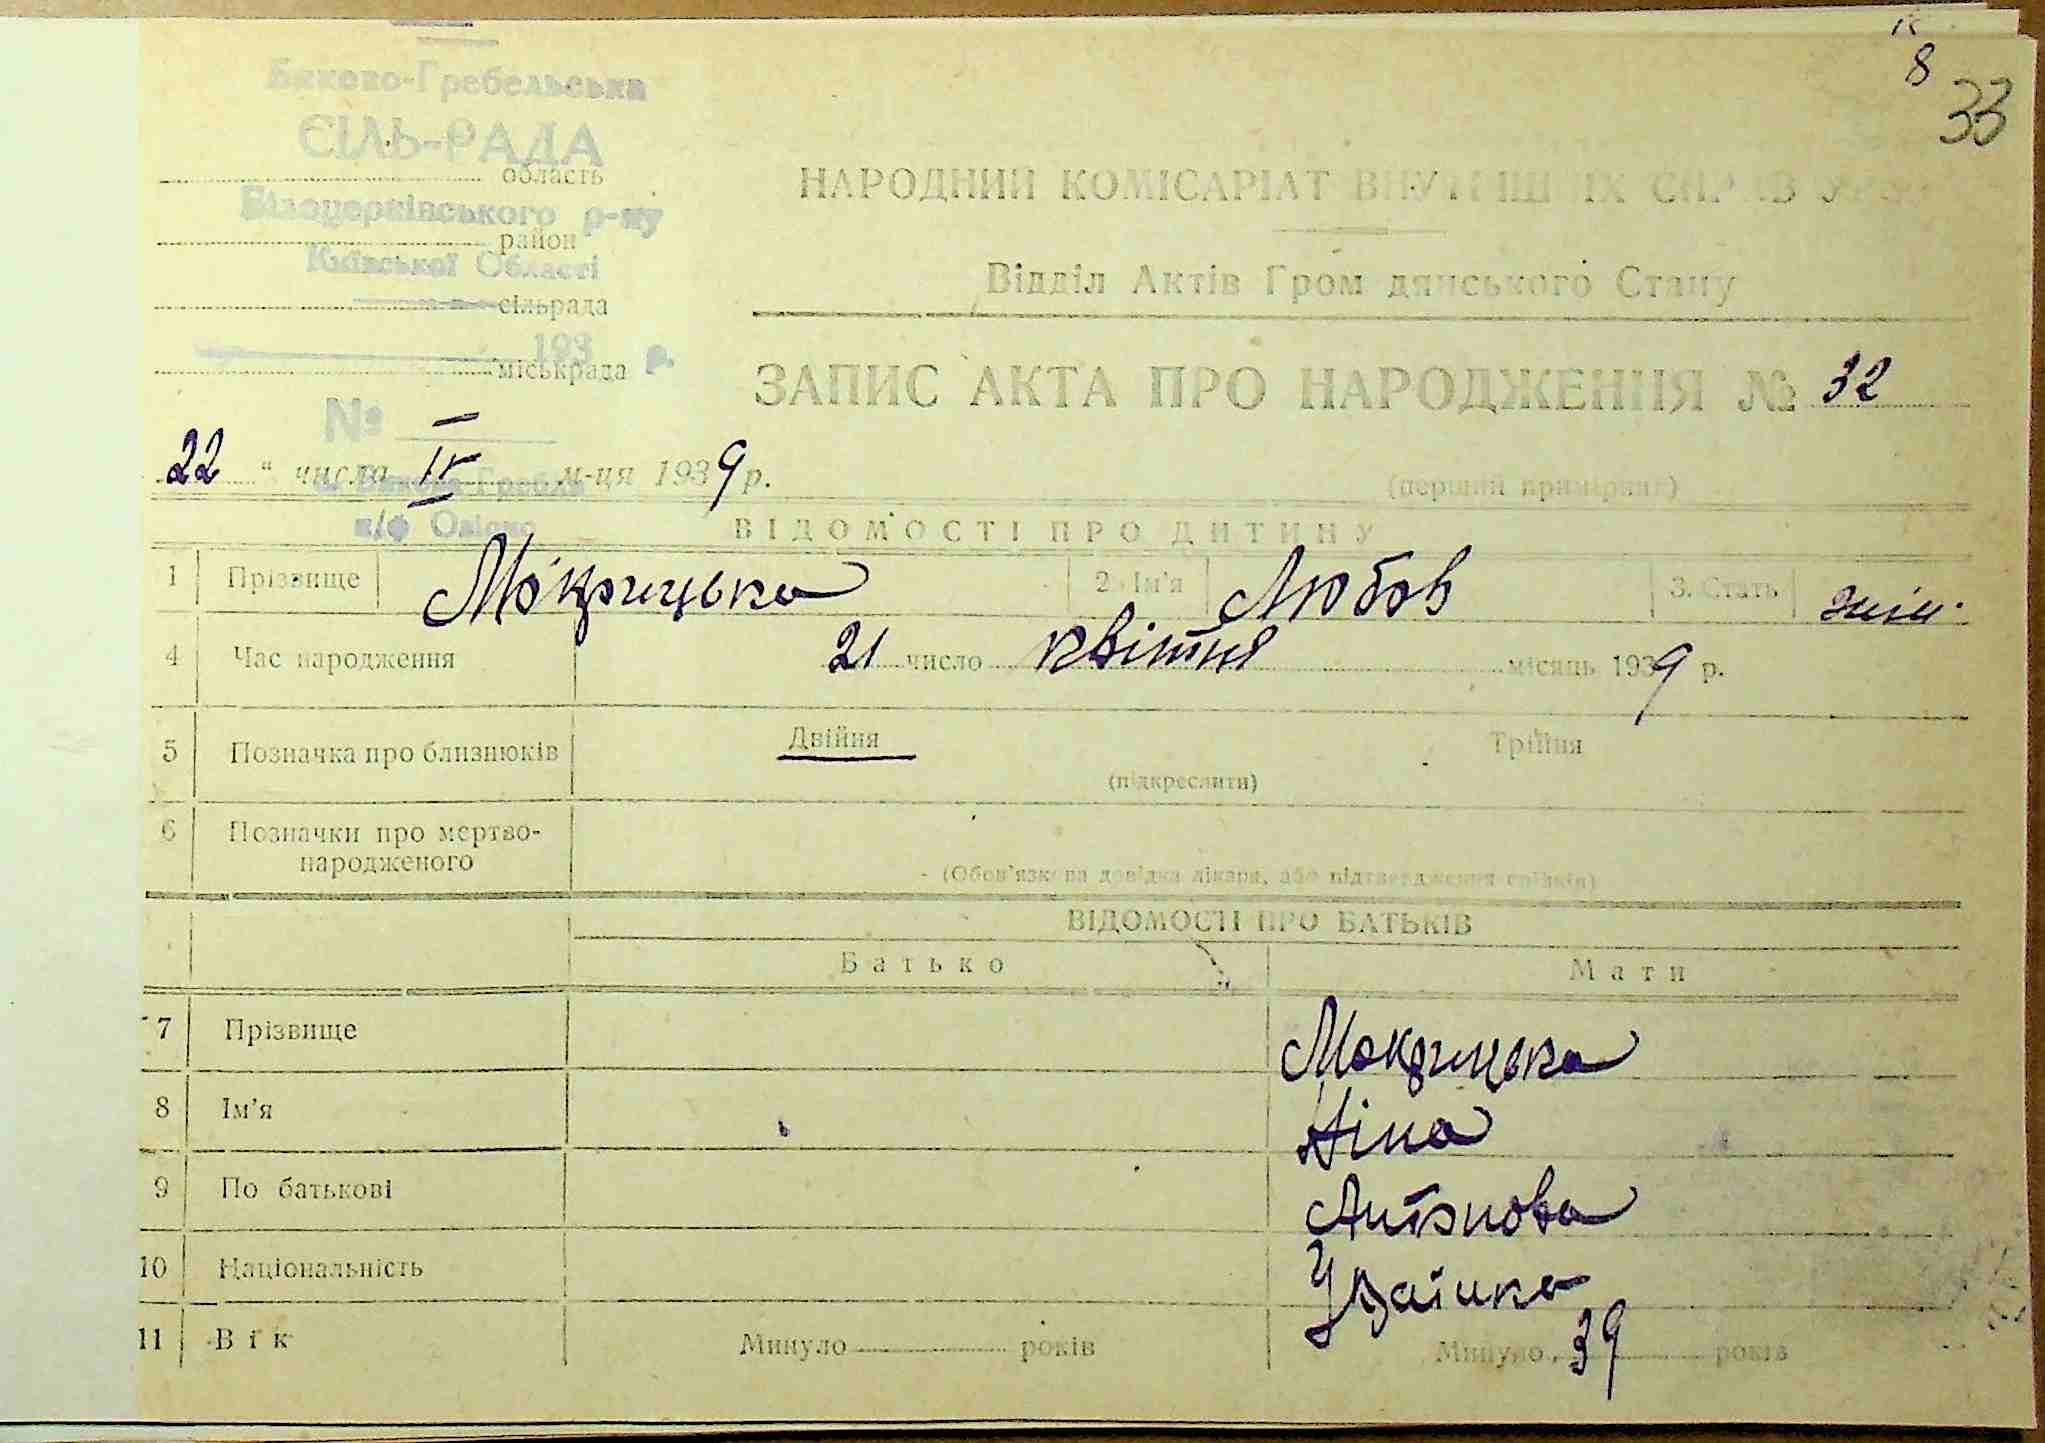 8
33
Биково-Гребельська
СІЛЬ-РАДА
область
Білоцерківського р-ну
район
Київської Області
сільрада
193 р.
міськрада
НАРОДНИЙ КОМІСАРІАТ ВНУТРІШНІХ СПРАВ УРСР
Відділ Актів Громадянського Стану
ЗАПИС АКТА ПРО НАРОДЖЕННЯ № 32
№
22 " числа IV м-ця 1939 р.
(перший примірник)
с. Бикова-Гребля
п/в
ВІДОМОСТІ ПРО ДИТИНУ
1 Прізвище Мокрицька 2. Ім'я Любов 3. Стать жін.
4 Час народження 21 число квітня місяць 1939 р.
5 Позначка про близнюків Двійня Трійня
(підкреслити)
6 Позначки про мертво-
народженого
(Обов'язкова довідка лікаря, або підтвердження свідків)
ВІДОМОСТІ ПРО БАТЬКІВ
Батько Мати
7 Прізвище Мокрицька
8 Ім'я Ніна
9 По батькові Антонова
10 Національність Українка
11 Вік Минуло років Минуло 39 років